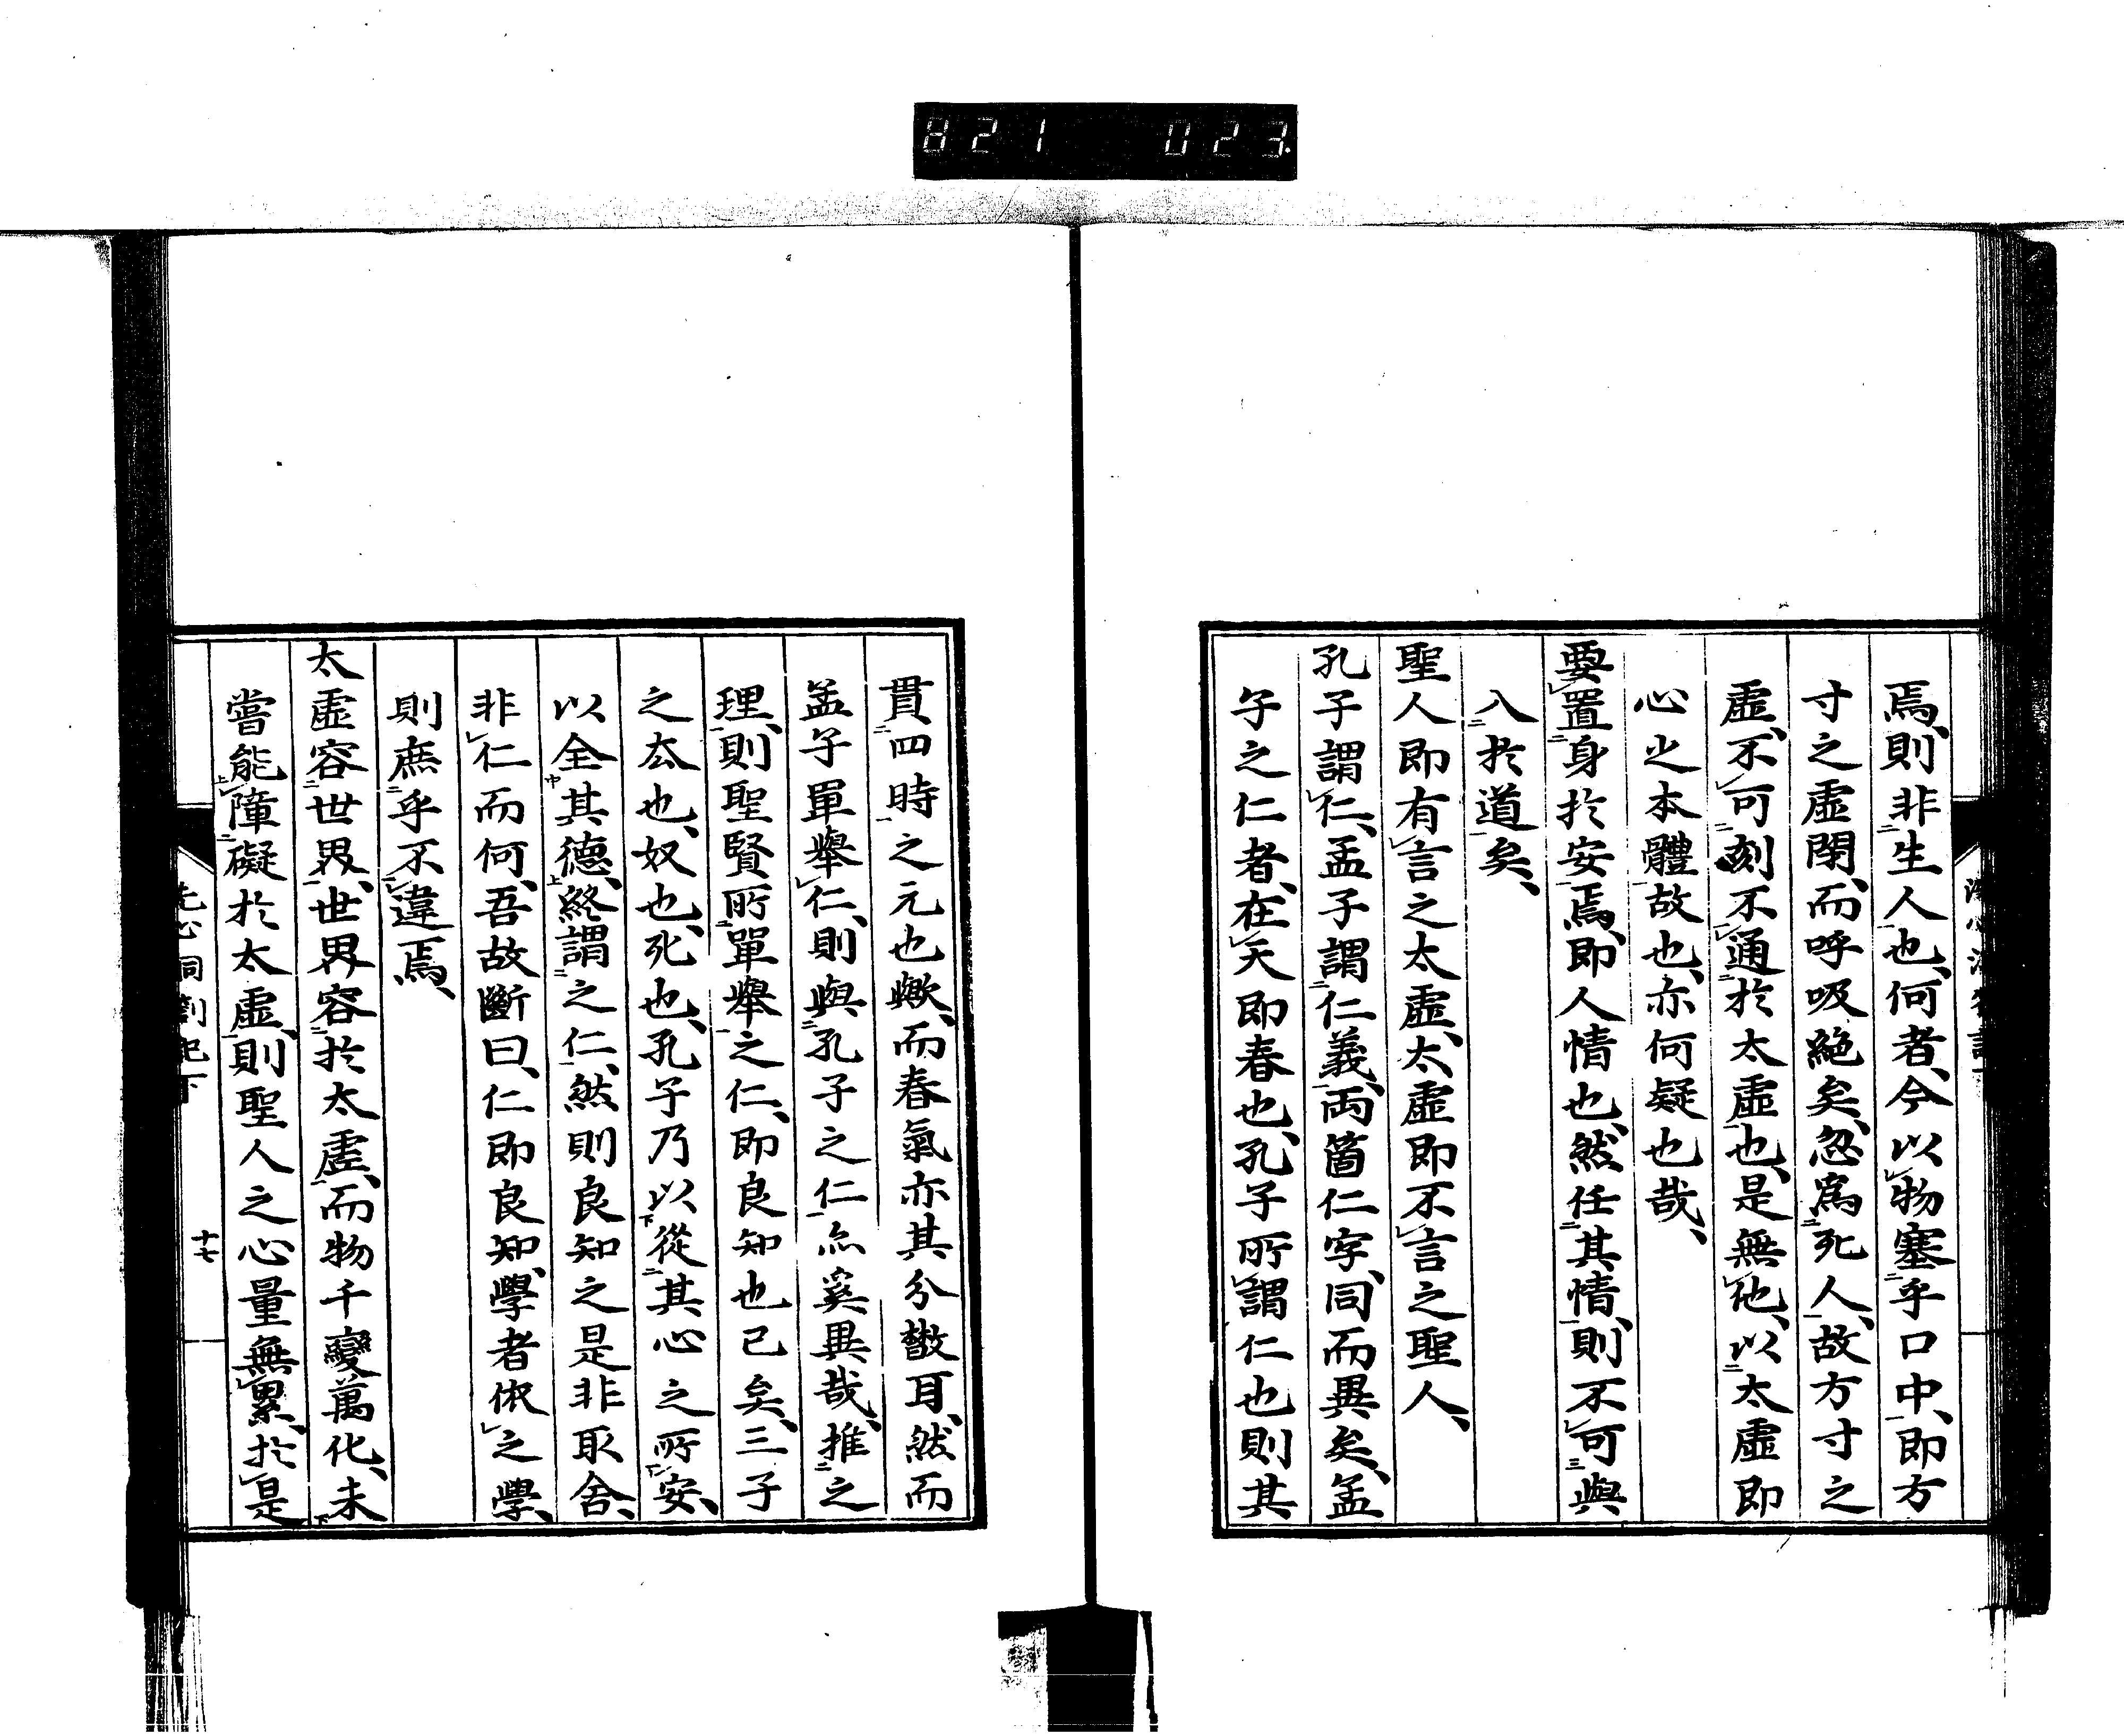 821 023
焉、則非生人也、何者、今以物塞乎口中、即方
寸之虛閉、而呼吸絕矣、忽爲死人、故方寸之
虛、不可刻不通於太虛也、是無他、以太虛即
心之本體故也、亦何疑也哉、
要置身於安焉、即人情也、然任其情、則不可與
入於道矣、
聖人即有言之太虛、太虛即不言之聖人、
孔子謂仁、孟子謂仁義、両箇仁字、同而異矣、孟
子之仁者、在天即春也、孔子所謂仁也則其
貫四時之元也歟、而春氣亦其分散耳、然而
孟子單舉仁、則與孔子之仁亦奚異哉、推之
理、則聖賢所單舉之仁、即良知也已矣、三子
之去也、奴也、死也、孔子乃以從其心之所安、
以全其德、終謂之仁、然則良知之是非取舍、
非仁而何、吾故斷曰、仁即良知、學者依之學、
則庶乎不違焉、
太虛容世界、世界容於太虛、而物千變萬化、未
嘗能障礙於太虛、則聖人之心量無累、於是
洗心洞劄記下
十七